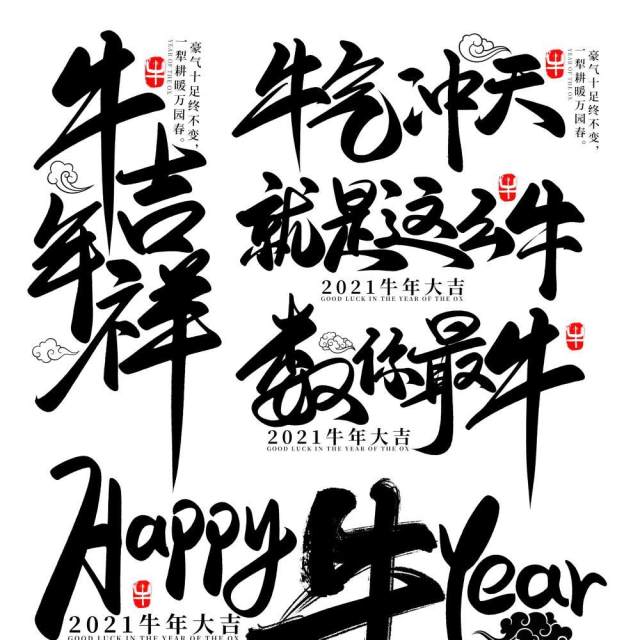 牛年吉祥
豪气十足终不变，
一犁耕暖万园春。
YEAR OF THE OX
牛
牛气冲天
豪气十足终不变，
一犁耕暖万园春。
YEAR OF THE OX
牛
就是这么牛
牛
2021牛年大吉
GOOD LUCK IN THE YEAR OF THE OX
数你最牛
牛
2021牛年大吉
GOOD LUCK IN THE YEAR OF THE OX
Happy牛Year
牛
2021牛年大吉